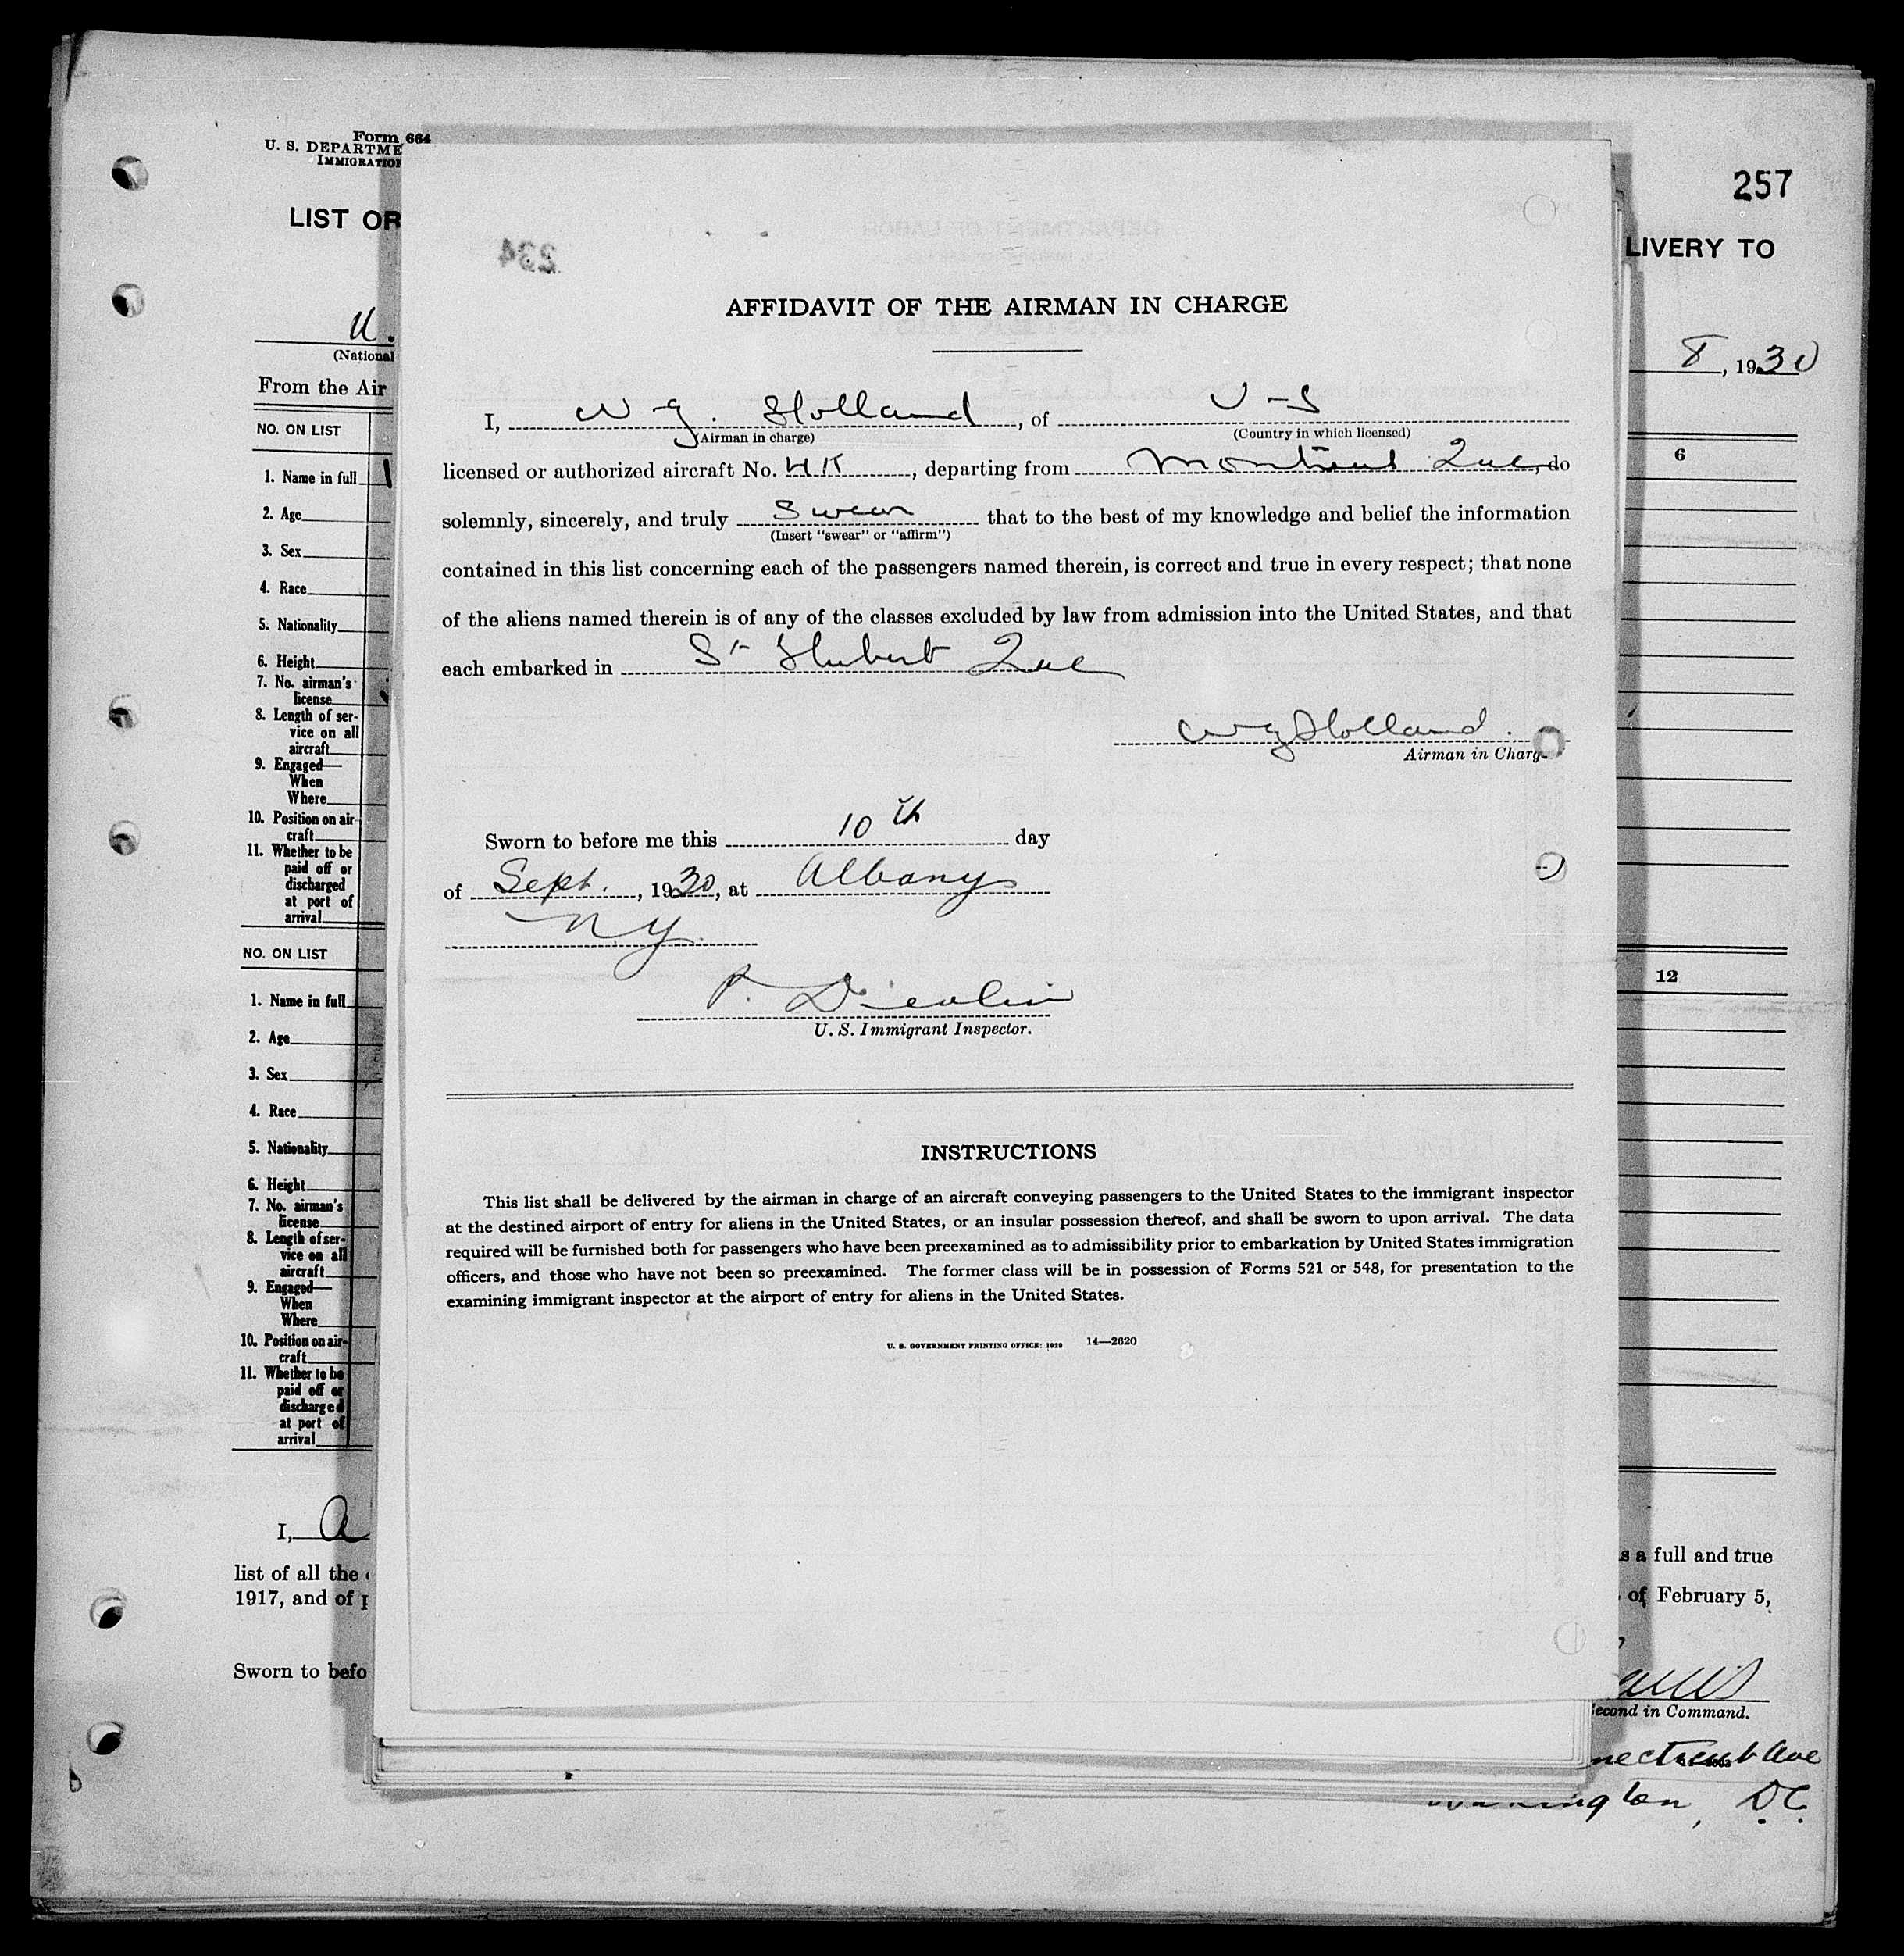 Form 664
U. S. DEPARTME
IMMIGRATION
LIST OR
257
LIVERY TO
234
AFFIDAVIT OF THE AIRMAN IN CHARGE
U.
(National
8, 1930
From the Air
I, W. G. Holland, of U-S
(Airman in charge) (Country in which licensed)
licensed or authorized aircraft No. 4K, departing from Montreal Que, do
solemnly, sincerely, and truly swear that to the best of my knowledge and belief the information
(Insert "swear" or "affirm")
contained in this list concerning each of the passengers named therein, is correct and true in every respect; that none
of the aliens named therein is of any of the classes excluded by law from admission into the United States, and that
each embarked in St Hubert Que
W G Holland.
Airman in Charge
Sworn to before me this 10th day
of Sept., 1930, at Albany
N.Y.
U. S. Immigrant Inspector.
INSTRUCTIONS
This list shall be delivered by the airman in charge of an aircraft conveying passengers to the United States to the immigrant inspector
at the destined airport of entry for aliens in the United States, or an insular possession thereof, and shall be sworn to upon arrival. The data
required will be furnished both for passengers who have been preexamined as to admissibility prior to embarkation by United States immigration
officers, and those who have not been so preexamined. The former class will be in possession of Forms 521 or 548, for presentation to the
examining immigrant inspector at the airport of entry for aliens in the United States.
U. S. GOVERNMENT PRINTING OFFICE: 1929 14—2620
NO. ON LIST
6
1. Name in full
2. Age
3. Sex
4. Race
5. Nationality
6. Height
7. No. airman's
license
8. Length of ser-
vice on all
aircraft
9. Engaged—
When
Where
10. Position on air-
craft
11. Whether to be
paid off or
discharged
at port of
arrival
NO. ON LIST
12
1. Name in full
2. Age
3. Sex
4. Race
5. Nationality
6. Height
7. No. airman's
license
8. Length of ser-
vice on all
aircraft
9. Engaged—
When
Where
10. Position on air-
craft
11. Whether to be
paid off or
discharged
at port of
arrival
I, A
s a full and true
list of all the
of February 5,
1917, and of
Sworn to befo
Second in Command.
necticut Ave
Washington, D.C.